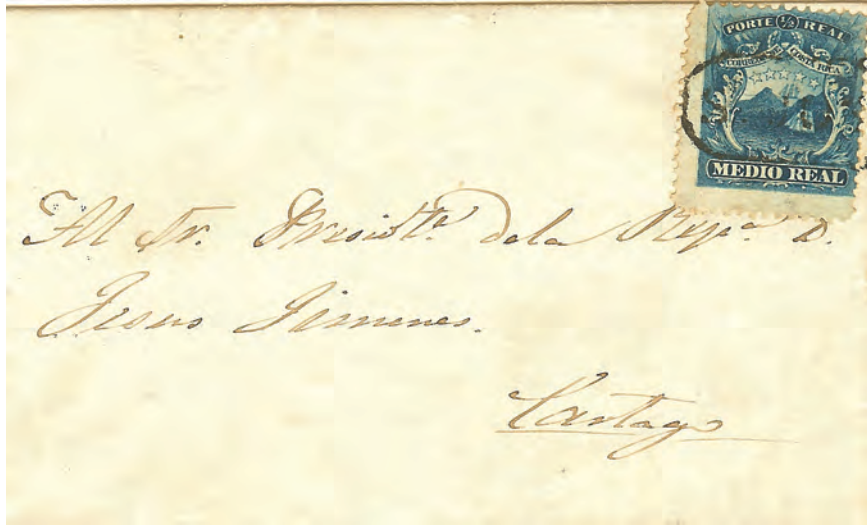 PORTE 1/2 REAL
CORREOS DE COSTA RICA
MEDIO REAL
Al Sr. Presidte. dela Repca. D.
Jesus Jimenes.
Cartago